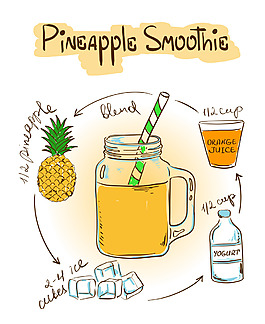 PINEAPPLE SMOOTHIE
1/2 pineapple
blend
1/2 cup
ORANGE
JUICE
1/2 cup
YOGURT
2-4 ice
cubes